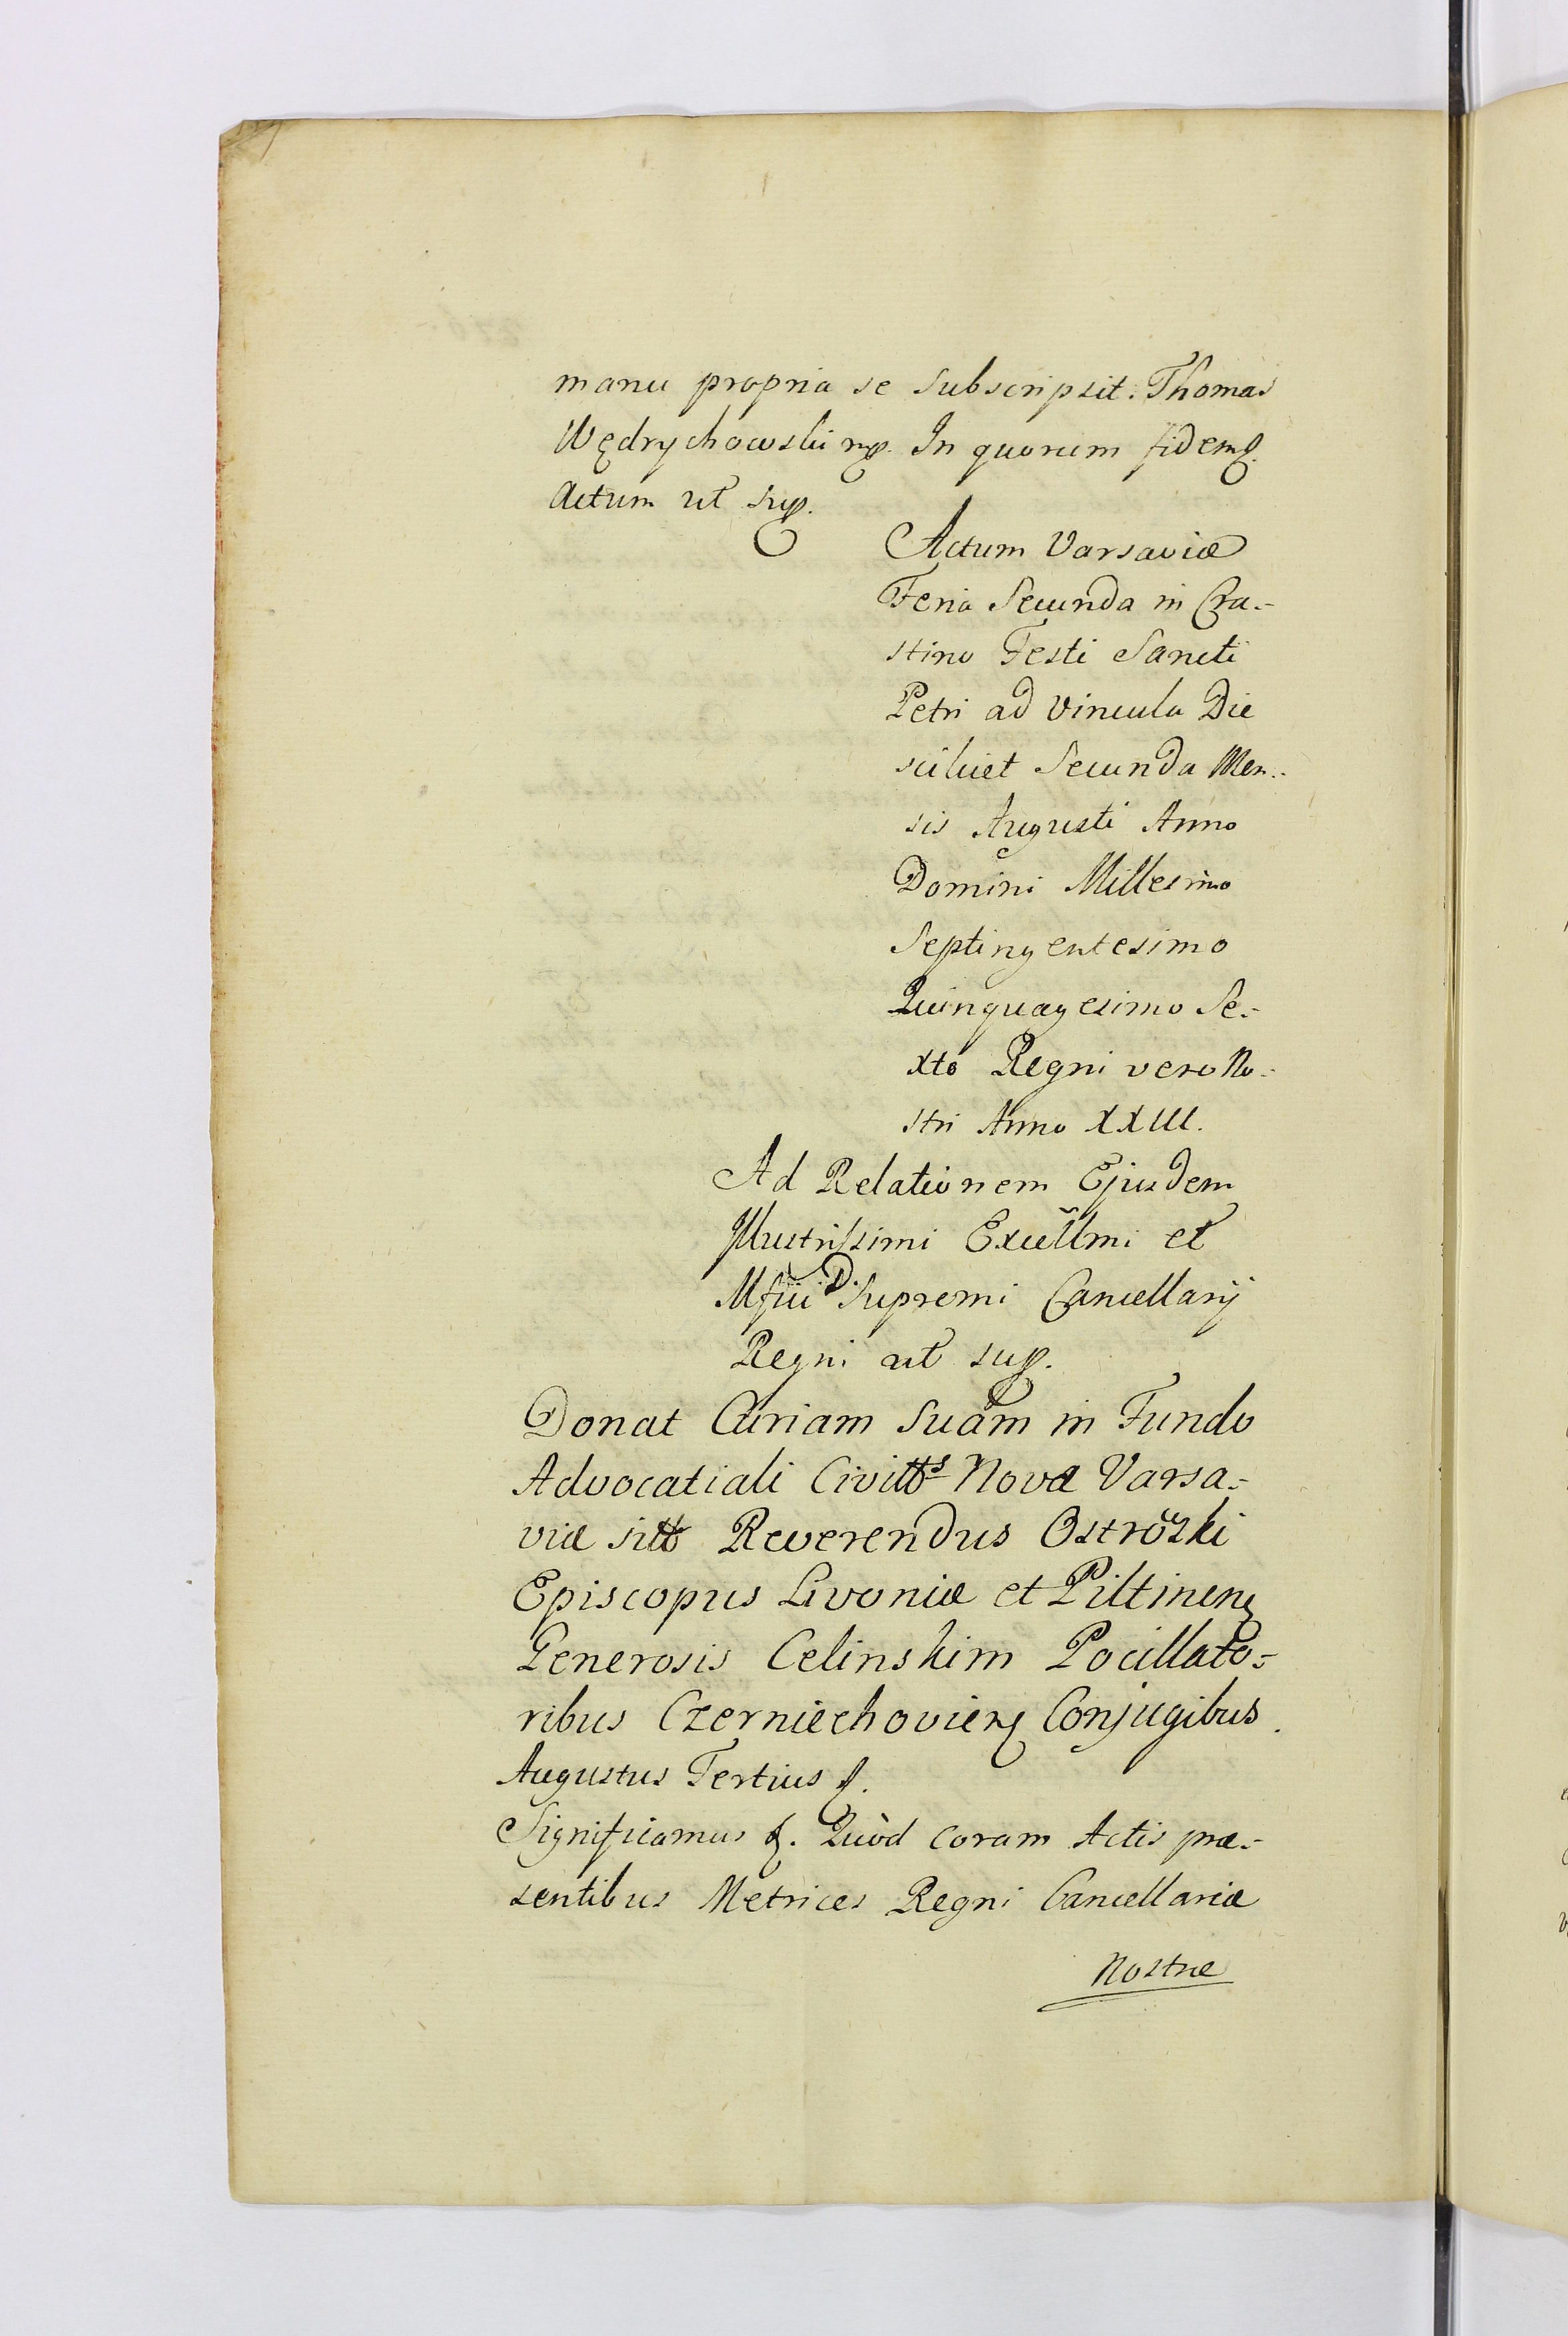 manu propria se subscripsit. Thomas
Wędrychowski mp. In quorum fidem &.
Actum ut sup.
Actum Varsaviæ
Feria Secunda in Cra-
stino Festi Sancti
Petri ad Vincula Die
scilicet Secunda Men-
sis Augusti Anno
Domini Millesimo
Septingentesimo
Quinquagesimo Se-
xto Regni vero No-
stri Anno XXIII.
Ad Relationem Ejusdem
Illustrissimi Excellmi et
Mfici D. Supremi Cancellarij
Regni ut sup.
Donat Curiam Suam in Fundo
Advocatiali Civitts Novæ Varsa-
viæ sitt Reverendus Oströzki
Episcopus Livoniæ et Piltinen
Generosis Celinskim Pocillato-
ribus Czerniechovien Conjugibus.
Augustus Tertius &.
Significamus &. Quòd coram Actis præ-
sentibus Metrices Regni Cancellariæ
Nostræ